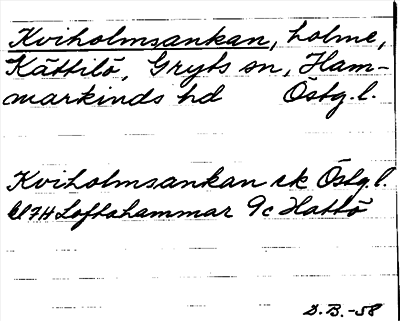 Kviholmsankan, holme,
Kättilö, Gryts sn, Ham-
markinds hd Östg.l.
Kviholmsankan ek Östg.l.
bl 7H Loftahammar 9c Hattö
D.B.-58